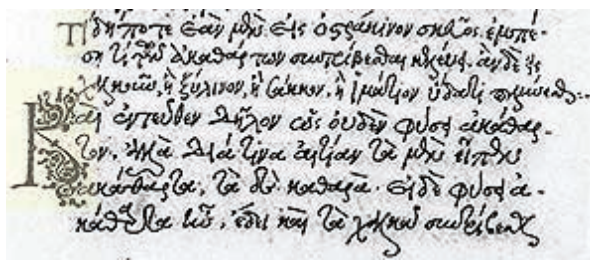 Τί δήποτε ἐὰν μὲν εἰς ὀστράκινον σκεῦος ἐμπέ-
σῃ τι τῶν ἀκαθάρτων συντρίβεσθαι κελεύει· ἂν δὲ εἰς
ἢ ξύλινον, ἢ σάκκον, ἢ ἱμάτιον ὕδατι
Καὶ ἐντεῦθεν δῆλον ὡς οὐδὲν φύσει ἀκάθαρ-
τον, ἀλλὰ διά τινα αἰτίαν τὰ μὲν εἶπεν
ἀκάθαρτα, τὰ δὲ καθαρά. εἰ δὲ φύσει ἀ-
κάθαρτα ἦν, ἔδει καὶ τὰ χαλκᾶ συντρίβεσθαι